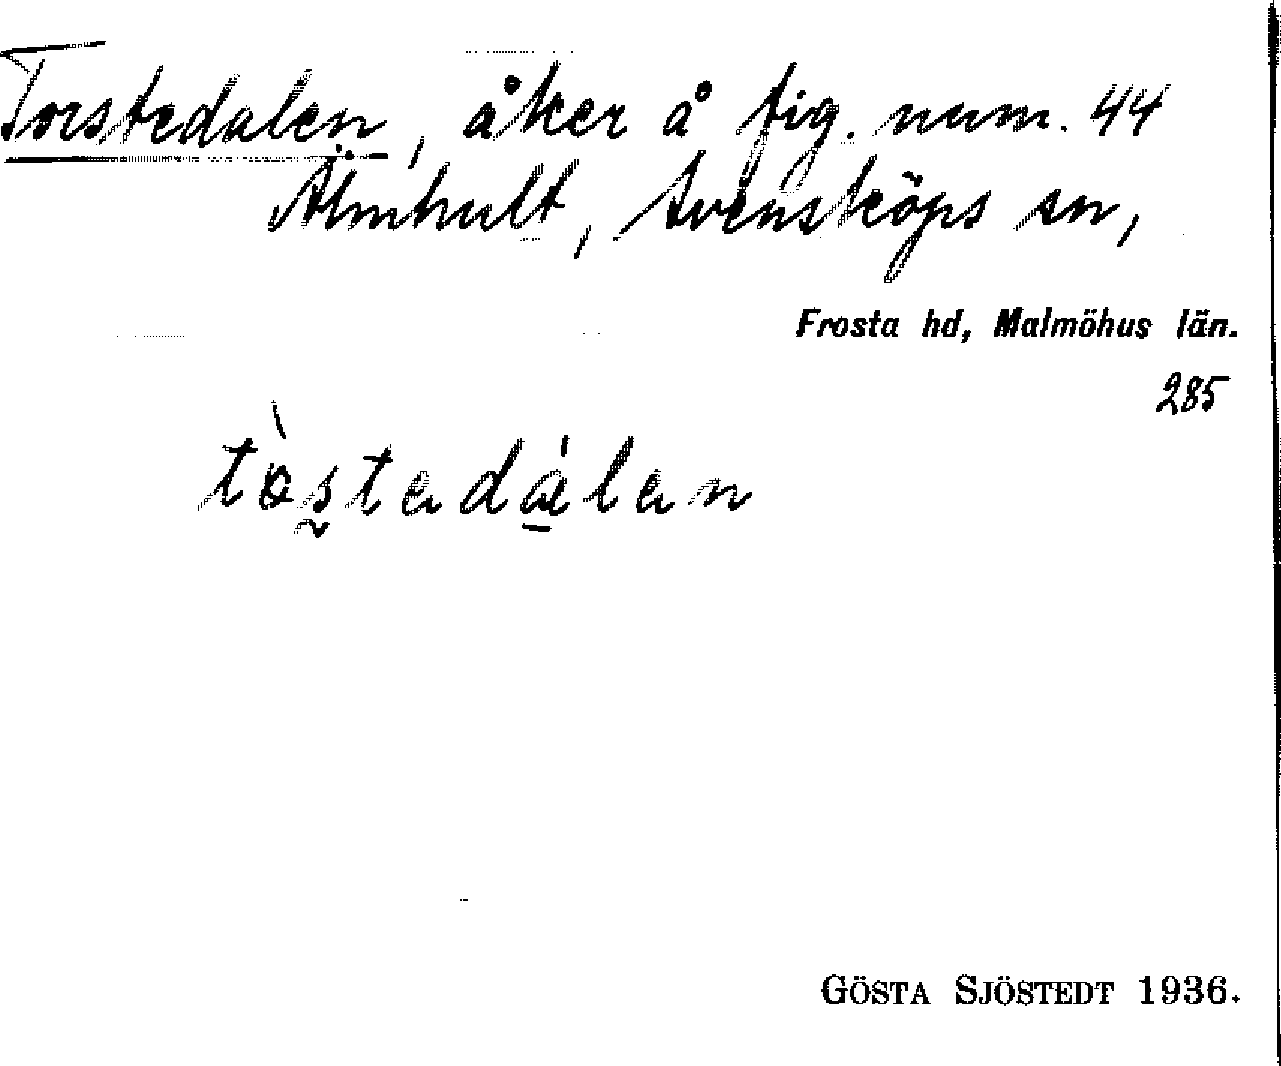 Torstedalen, åker å fig. num. 44
Älmhult, Svensköps sn,
Frosta hd, Malmöhus län.
285
tòstedálen
GÖSTA SJÖSTEDT 1936.